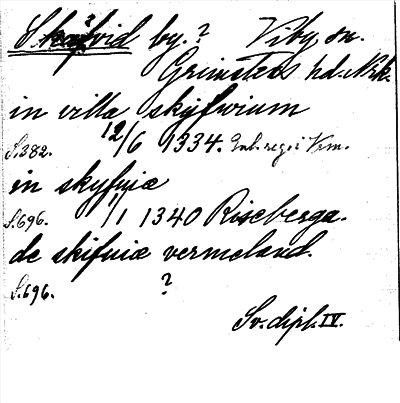 Skyfvid by. ? Viby sn.
Grimstens hd. Nrk.
in villa skyfwium
S.382. 12/6 1334. Inl. reg. i Vrm.
in skyfuiæ
S.696. 1/1 1340 Riseberga.
de skifuiæ vermeland.
S.696. ?
Sv. dipl. IV.